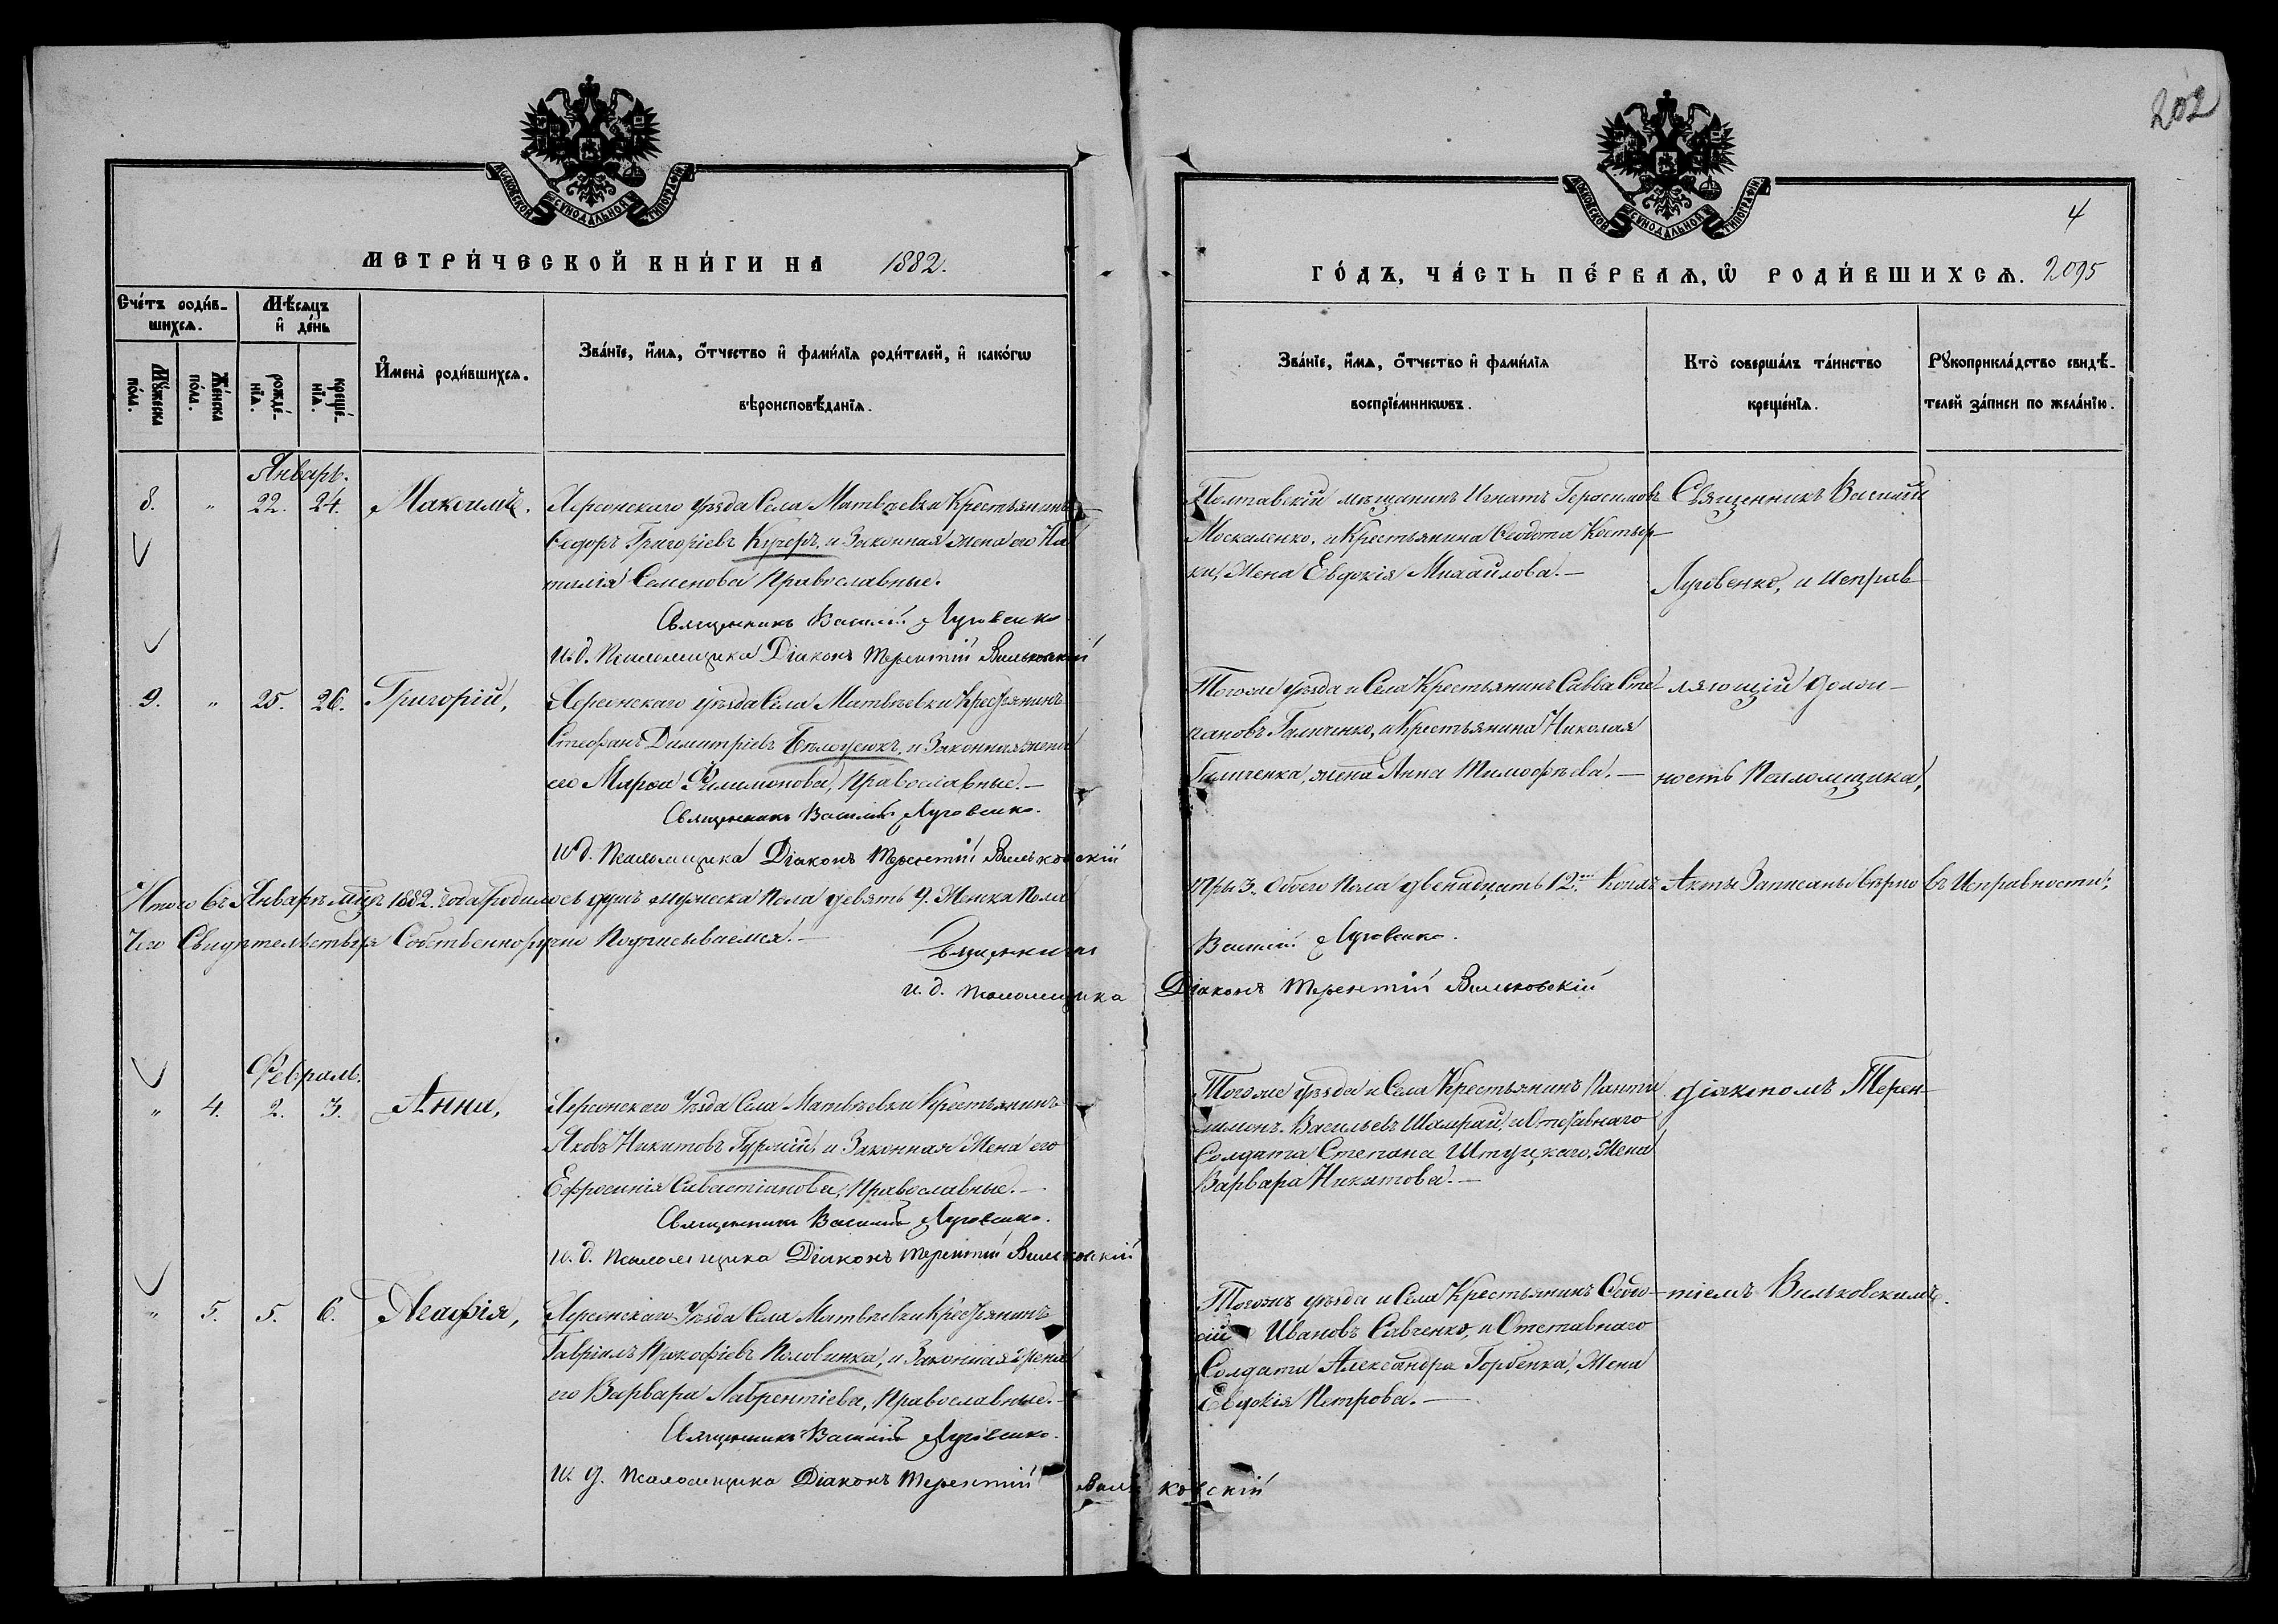 202
МОСКОВСКОЙ СѴНОДАЛЬНОЙ ТИПОГРАФІИ
МОСКОВСКОЙ СѴНОДАЛЬНОЙ ТИПОГРАФІИ
4
МЕТРИ́ЧЕСКОЙ КНИ́ГИ НА 1882.
ГО́ДЪ, ЧА́СТЬ ПЕ́РВАЯ, Ѡ РОДИ́ВШИХСЯ. 2095
Сче́тъ роди́в-
шихся.
Мѣ́сяцъ
и де́нь
Му́жеска по́ла.
Же́нска по́ла.
рожде́-нїя.
креще́-нїя.
Имена̀ роди́вшихся.
Зва́нїе, и́мя, о́тчество и фами́лїя роди́телей, и како́гѡ
вѣроисповѣ́данїя.
Зва́нїе, и́мя, о́тчество и фами́лїя
воспрїе́мникѡвъ.
Кто̀ соверша́лъ та́инство
креще́нїя.
Рꙋкоприкла́дство свидѣ́-
телей за́писи по жела́нїю.
Январь.
8. " 22. 24. Максимъ. Херсонскаго уѣзда Села Матвѣевки Крестьянинъ
Ѳедоръ Григоріевъ Кучеръ, и Законная жена его На
талія Семенова Православные.
Священникъ Василій Луговенко
И. д. Псаломщика Діаконъ Терентій Вильковскій
Полтавскій мѣщанинъ Игнатъ Герасимовъ
Москаленко, и Крестьянина Ѳеодота Костыр-
ки, Жена Евдокія Михайлова. —
Священникъ Василій
Луговенко, и исправ
9. " 25. 26. Григорій, Херсонскаго уѣзда Села Матвѣевки Крестьянинъ
Стефанъ Димитріевъ Бѣлоусюкъ, и Законная жена
его Марѳа Филимонова, Православные. —
Священникъ Василій Луговенко.
И д. Псаломщика Діаконъ Терентій Вильковскій
Тогоже уѣзда и Села Крестьянинъ Савва Сте-
пановъ Галиченко, и Крестьянина Николая
Галиченка, жена Анна Тимофѣева. —
ляющій долж-
ность Псаломщика,
Итого въ Январѣ м͠цѣ 1882. года родилось душъ мужеска Пола девять 9. Женска Пола
три 3. Обоего Пола двенадцать 12. Коихъ Акты Записаны вѣрно въ Исправности;
Чего Свидѣтельствуя Собственноручно Подписываемся. —
Священникъ Василій Луговенко.
и. д. псаломщика Діаконъ Терентій Вильковскій
Февраль.
" 4. 2. 3. Анна, Херсонскаго Уѣзда Села Матвѣевки Крестьянинъ
Яковъ Никитовъ Гурмій, и Законная Жена его
Ефросинія Савастіанова, Православные. —
Священникъ Василій Луговенко.
и. д. псаломщика Діаконъ Терентій Вильковскій
Тогоже уѣзда и Села Крестьянинъ Панти
лимонъ Васильевъ Шамрай, и Отставнаго
Солдата Степана Штуцкаго, Жена
Варвара Никитова. —
діакономъ Терен-
" 5. 5. 6. Агафія, Херсонскаго Уѣзда Села Матвѣевки Крестьянинъ
Гавріилъ Прокофіевъ Половинка, и Законная жена
его Варвара Лаврентіева, Православные. —
Священникъ Василій Луговенко.
и. д. псаломщика Діаконъ Терентій Вильковскій
Тогожъ уѣзда и Села Крестьянинъ Ѳеодо-
сій Ивановъ Савченко, и Отставнаго
Солдата Александра Горбенка, Жена
Евдокія Петрова. —
тіемъ Вильковскимъ.